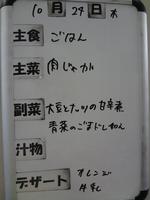 10月29日木
主食 ごはん
主菜 肉じゃが
副菜 大豆とナッツの甘辛煮
青菜のごまドレ和え
汁物
デザート オレンジ
牛乳